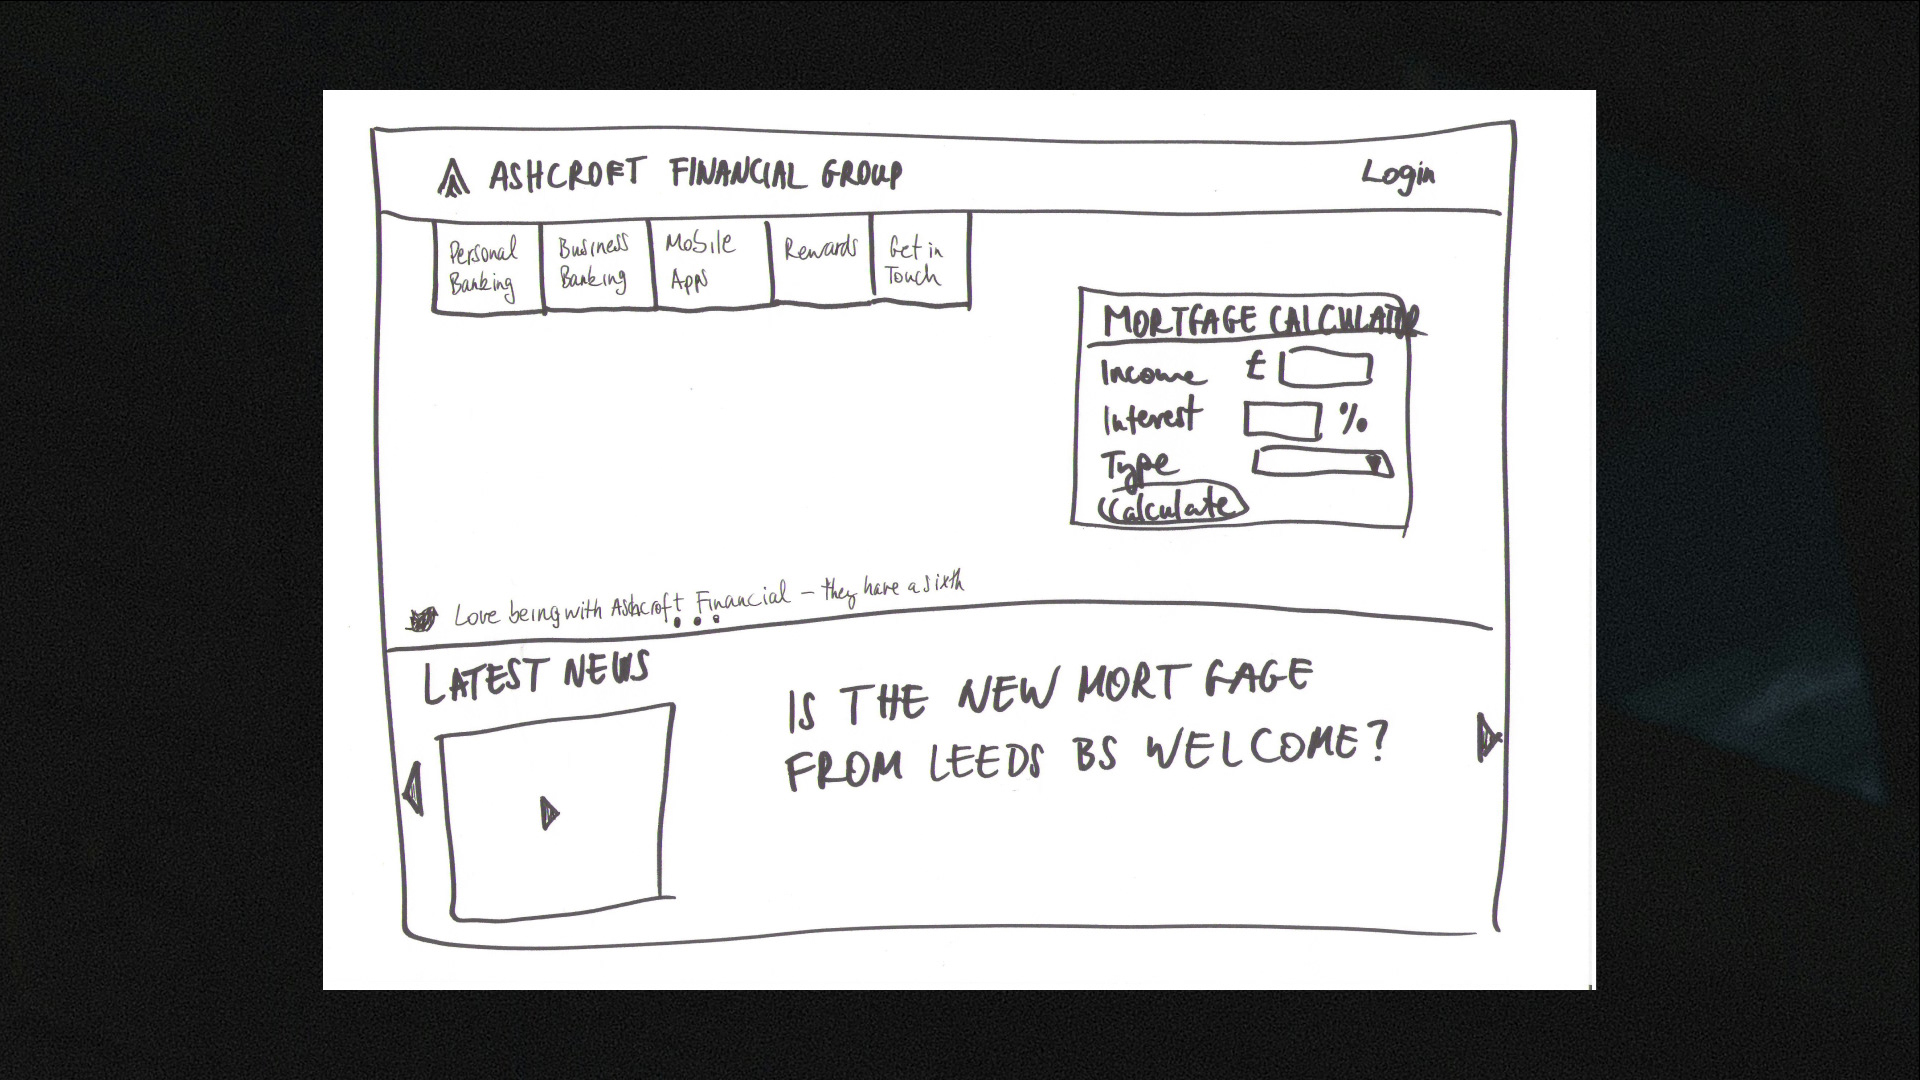 ASHCROFT FINANCIAL GROUP
Login
Personal
Banking
Business
Banking
Mobile
Apps
Rewards
Get in
Touch
MORTGAGE CALCULATOR
Income £
Interest %
Type
Calculate
Love being with Ashcroft Financial – they have a sixth
LATEST NEWS
IS THE NEW MORTGAGE
FROM LEEDS BS WELCOME?